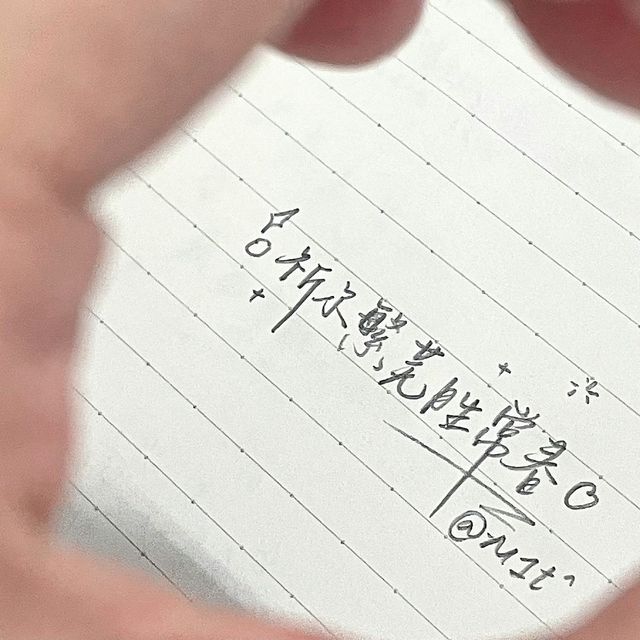 祈尔繁芜胜常春
@M1t^